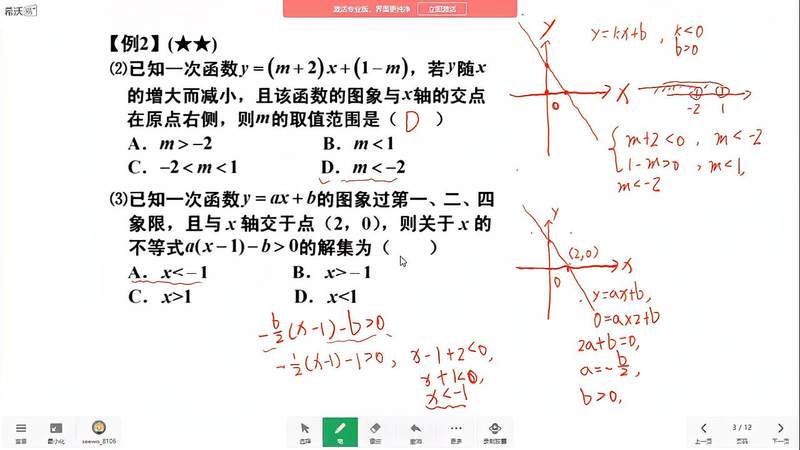 希沃
激活专业版，界面更纯净 立即激活
【例2】(★★)
⑵已知一次函数y=(m+2)x+(1-m)，若y随x
的增大而减小，且该函数的图象与x轴的交点
在原点右侧，则m的取值范围是（ D ）
A．m>-2 B．m<1
C．-2<m<1 D．m<-2
⑶已知一次函数y=ax+b的图象过第一、二、四
象限，且与x轴交于点（2，0），则关于x的
不等式a(x-1)-b>0的解集为（ ）
A．x<-1 B．x>-1
C．x>1 D．x<1
-b/2(x-1)-b>0
-1/2(x-1)-1>0,
x-1+2<0,
x+1<0,
x<-1
y
x
0
y=kx+b , k<0
b>0
-2 1
m+2<0, m<-2
1-m>0, m<1,
m<-2
y
(2,0)
0
x
y=ax+b,
0=a×2+b
2a+b=0,
a=-b/2,
b>0,
菜单 最小化 seewo_8106
选择 笔 橡皮 撤销 更多
上一页 3 / 12 下一页